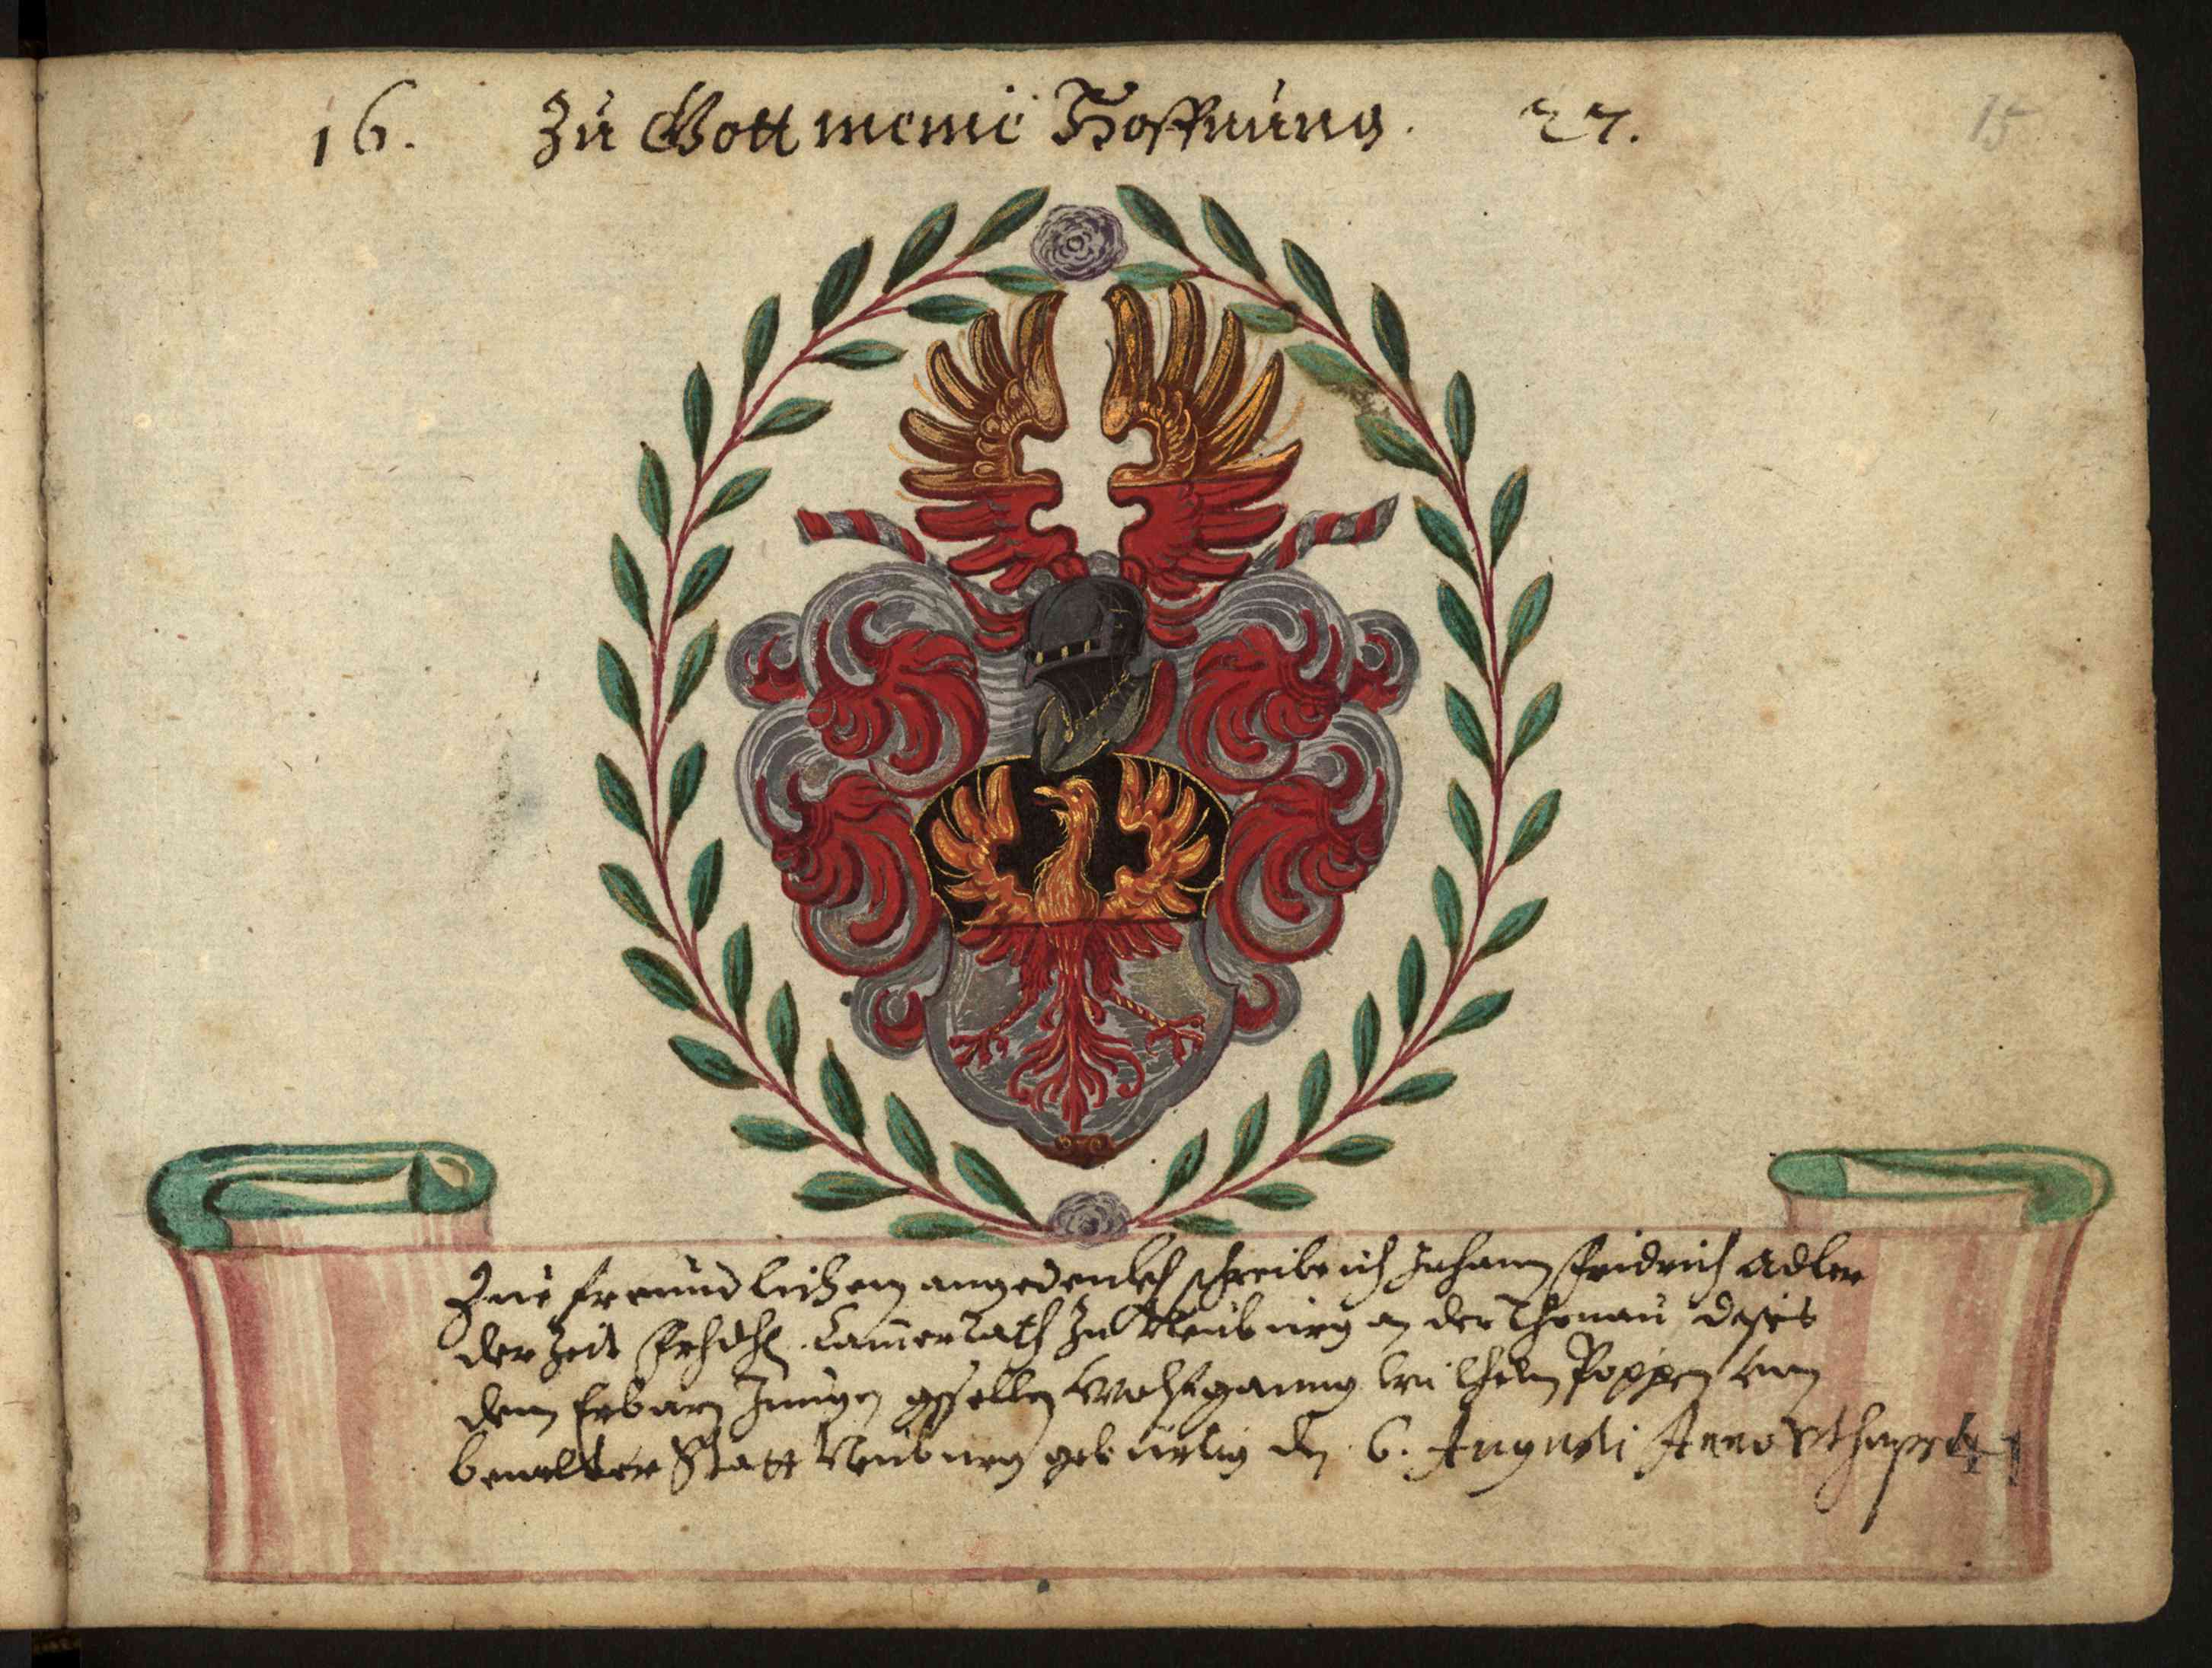 16. Zu Gott meine Hoffnung. 27.
15
Zue freundlichem angedenkh schreib ich Johann Fridrich Adler
der Zeit Cammerrath Zu Neuburg an der Thonau dises
dem Erbarn Jungen gsellen Wolfganng Wilhelm Poppen von
Statt Neuburg gebürtig den 6. Augusti Anno